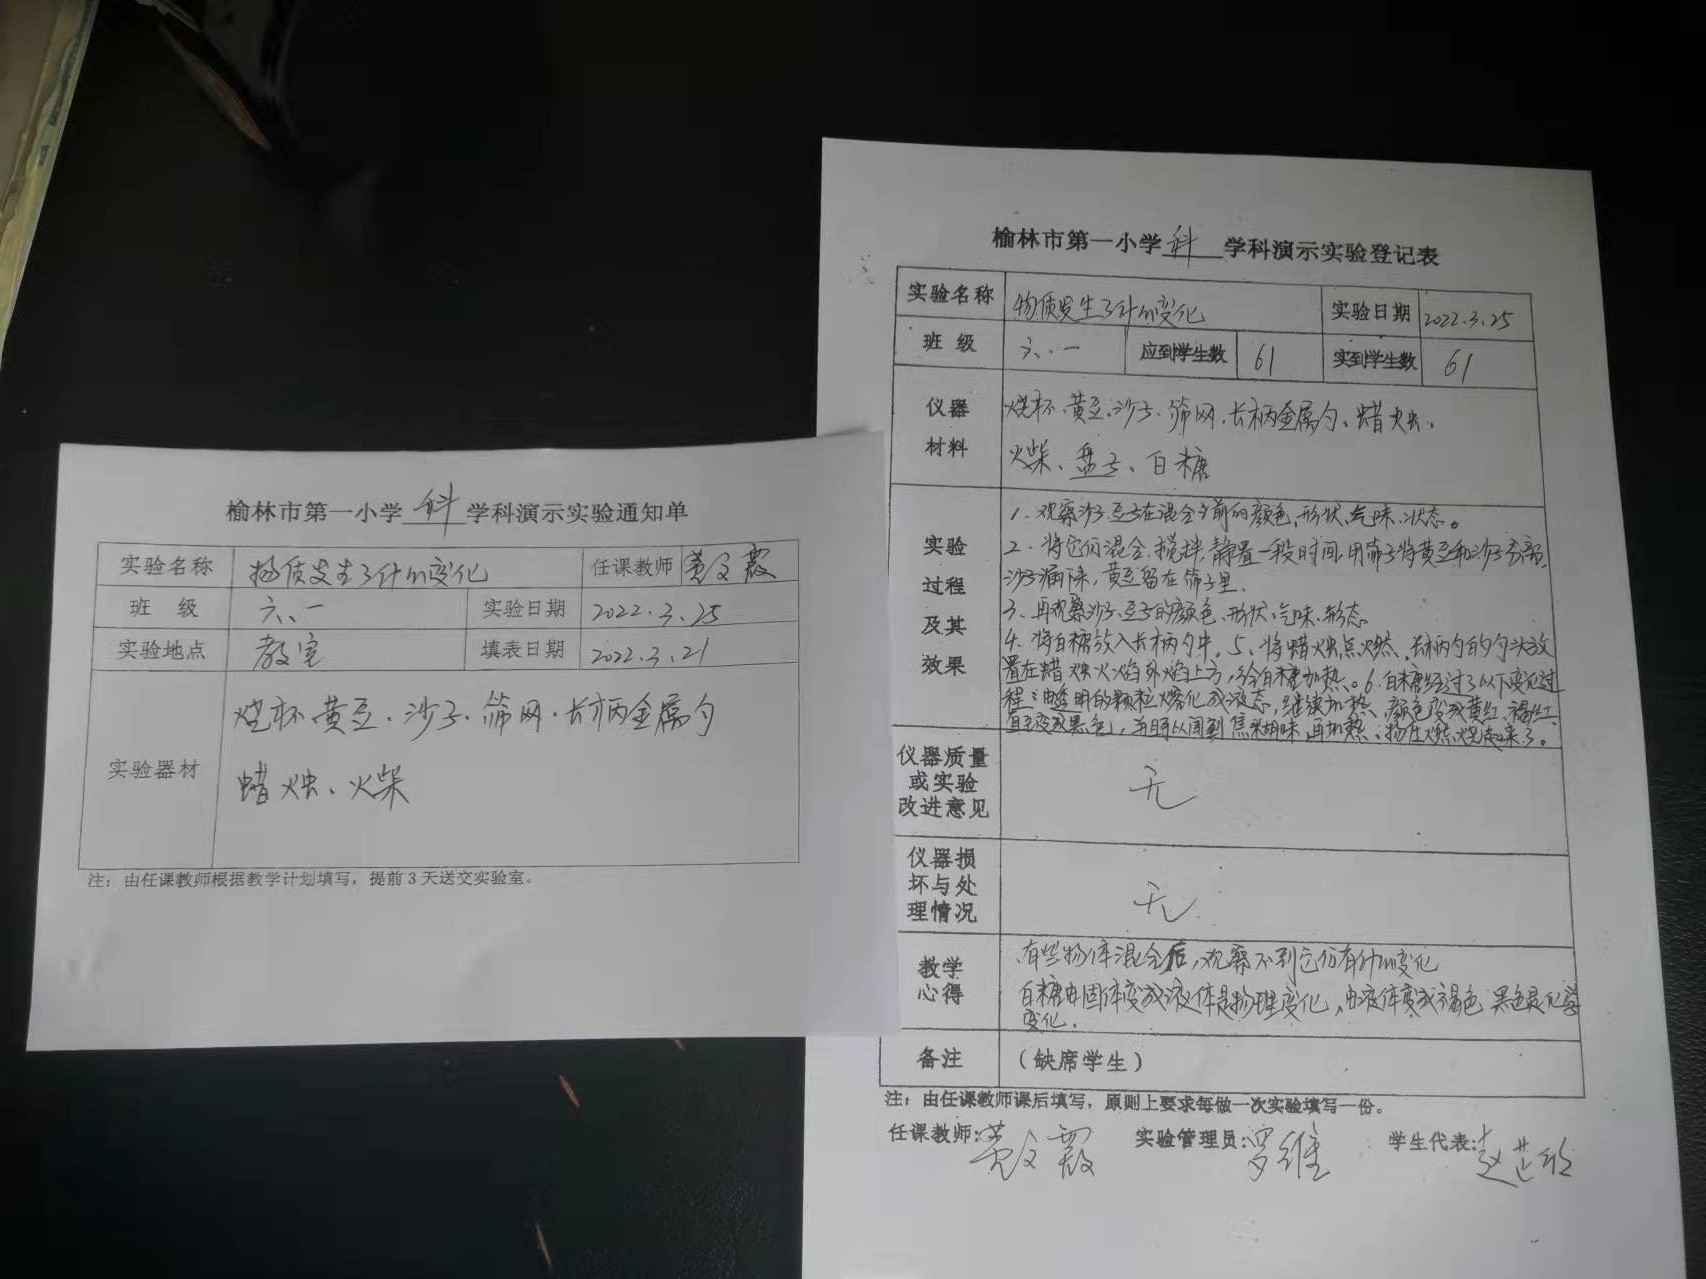 榆林市第一小学 科 学科演示实验通知单
实验名称 物质发生了什么变化 任课教师
班 级 六、一 实验日期 2022.3.25
实验地点 教室 填表日期 2022.3.21
实验器材
烧杯、黄豆、沙子、筛网、长柄金属勺
蜡烛、火柴
注：由任课教师根据教学计划填写，提前3天送交实验室。
榆林市第一小学 科 学科演示实验登记表
实验名称 物质发生了什么变化 实验日期 2022.3.25
班 级 六、一 应到学生数 61 实到学生数 61
仪器材料
烧杯、黄豆、沙子、筛网、长柄金属勺、蜡烛、
火柴、盘子、白糖
实验过程及其效果
1、观察沙子、豆子在混合之前的颜色、形状、气味、状态。
2、将它们混合、搅拌、静置一段时间，用筛子将黄豆和沙子分离，
沙子漏下来，黄豆留在筛子里.
3、再观察沙子、豆子的颜色、形状、气味、形态
4、将白糖放入长柄勺中。5、将蜡烛点燃、长柄勺的勺头放
置在蜡烛火焰外焰上方，给白糖加热。6.白糖经过了以下变化过
程：由透明的颗粒熔化成液态，继续加热、颜色变成黄红、褐红、
直至变成黑色，并可以闻到焦糊味，再加热、物体燃烧起来了。
仪器质量或实验改进意见 无
仪器损坏与处理情况 无
教学心得
有些物体混合后，观察不到它们有什么变化
白糖由固体变成液体是物理变化，由液体变成褐色 黑色是化学
变化.
备注 （缺席学生）
注：由任课教师课后填写，原则上要求每做一次实验填写一份。
任课教师: 实验管理员:罗维 学生代表:赵芷